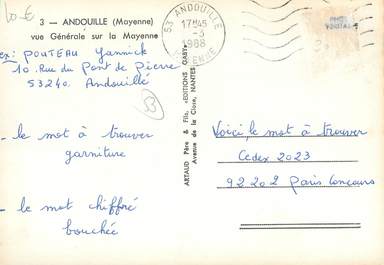 10 €
3 — ANDOUILLÉ (Mayenne)
vue Générale sur la Mayenne
ex: POUTEAU Yannick
10. Rue du Pont de Pierre
53240. Andouillé
B
- le mot à trouver
garniture
- le mot chiffré
bouchée
ARTAUD Père & Fils, «EDITIONS GABY»
Avenue de la Close, NANTES
53 ANDOUILLÉ
17H45
-3
1988
MAYENNE
Voici, le mot à trouver
Cedex 2023
92202 Paris Concours